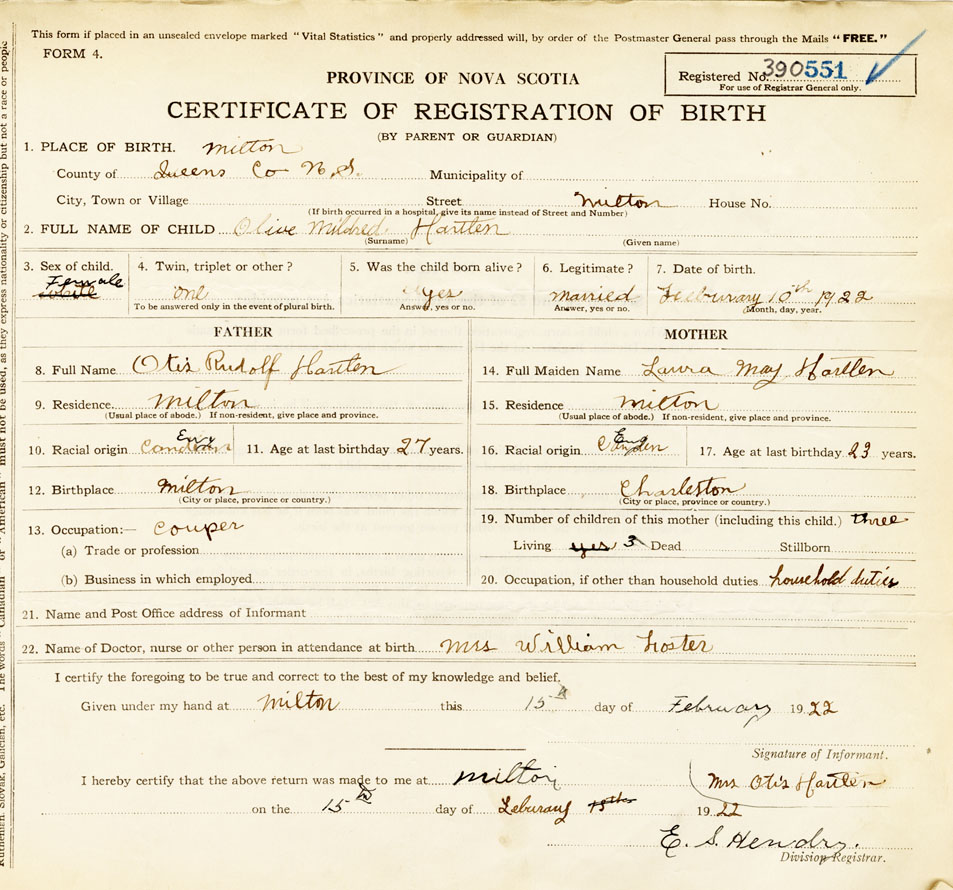 This form if placed in an unsealed envelope marked "Vital Statistics" and properly addressed will, by order of the Postmaster General pass through the Mails "FREE."
FORM 4.
PROVINCE OF NOVA SCOTIA
Registered No. 390551
For use of Registrar General only.
CERTIFICATE OF REGISTRATION OF BIRTH
(BY PARENT OR GUARDIAN)
1. PLACE OF BIRTH. Milton
County of Queens Co N.S. Municipality of
City, Town or Village Street Milton House No.
(If birth occurred in a hospital, give its name instead of Street and Number)
2. FULL NAME OF CHILD Olive Mildred Hartlen
(Surname) (Given name)
3. Sex of child. 4. Twin, triplet or other? 5. Was the child born alive? 6. Legitimate? 7. Date of birth.
Female one yes married Feeburary 10th 1922
To be answered only in the event of plural birth. Answer, yes or no. Answer, yes or no. Month, day, year.
FATHER MOTHER
8. Full Name Otis Rudolf Hartlen 14. Full Maiden Name Laura May Hartlen
9. Residence Milton 15. Residence Milton
(Usual place of abode.) If non-resident, give place and province. (Usual place of abode.) If non-resident, give place and province.
10. Racial origin 11. Age at last birthday 27 years. 16. Racial origin 17. Age at last birthday 23 years.
12. Birthplace Milton 18. Birthplace Charleston
(City or place, province or country.) (City or place, province or country.)
13. Occupation:— Couper 19. Number of children of this mother (including this child.) three
(a) Trade or profession Living yes 3 Dead Stillborn
(b) Business in which employed 20. Occupation, if other than household duties household duties
21. Name and Post Office address of Informant
22. Name of Doctor, nurse or other person in attendance at birth Mrs William Foster
I certify the foregoing to be true and correct to the best of my knowledge and belief.
Given under my hand at Milton this 15 day of February 1922
Signature of Informant.
I hereby certify that the above return was made to me at Milton Mrs Otis Hartlen
on the 15 day of 1922
E. S. Hendry.
Division Registrar.
Ruthenian, Slovak, Galician, etc. The words "Canadian" or "American" must not be used, as they express nationality or citizenship but not a race or people